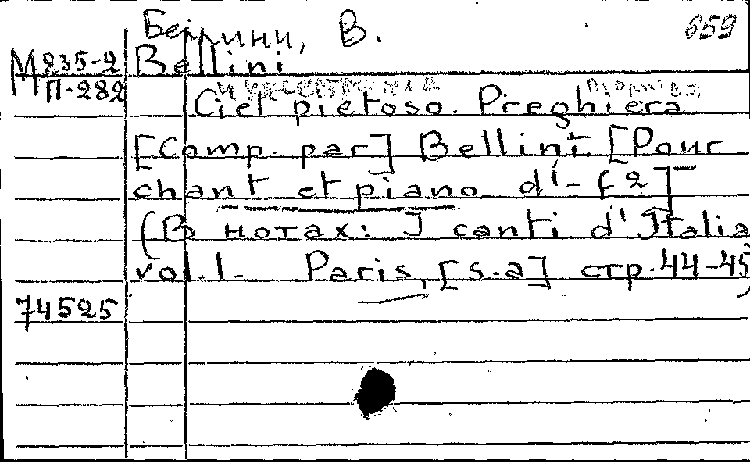 Беллини, В. 659
М 235-2 Bellini
П-282
Ciel pietoso. Preghiera
[Comp. par] Bellini [Pour
chant et piano d'-f2]
(В нотах: I canti d'Italia
vol. 1. Paris, [s.a] стр. 44-45)
74525